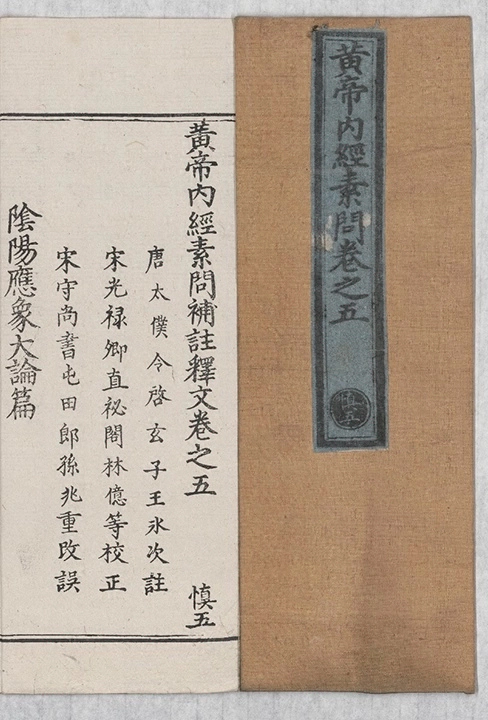 黃帝內經素問卷之五
慎五
黃帝內經素問補註釋文卷之五
慎五
唐太僕令啓玄子王冰次註
宋光禄卿直祕閣林億等校正
宋守尚書屯田郎孫兆重改誤
陰陽應象大論篇